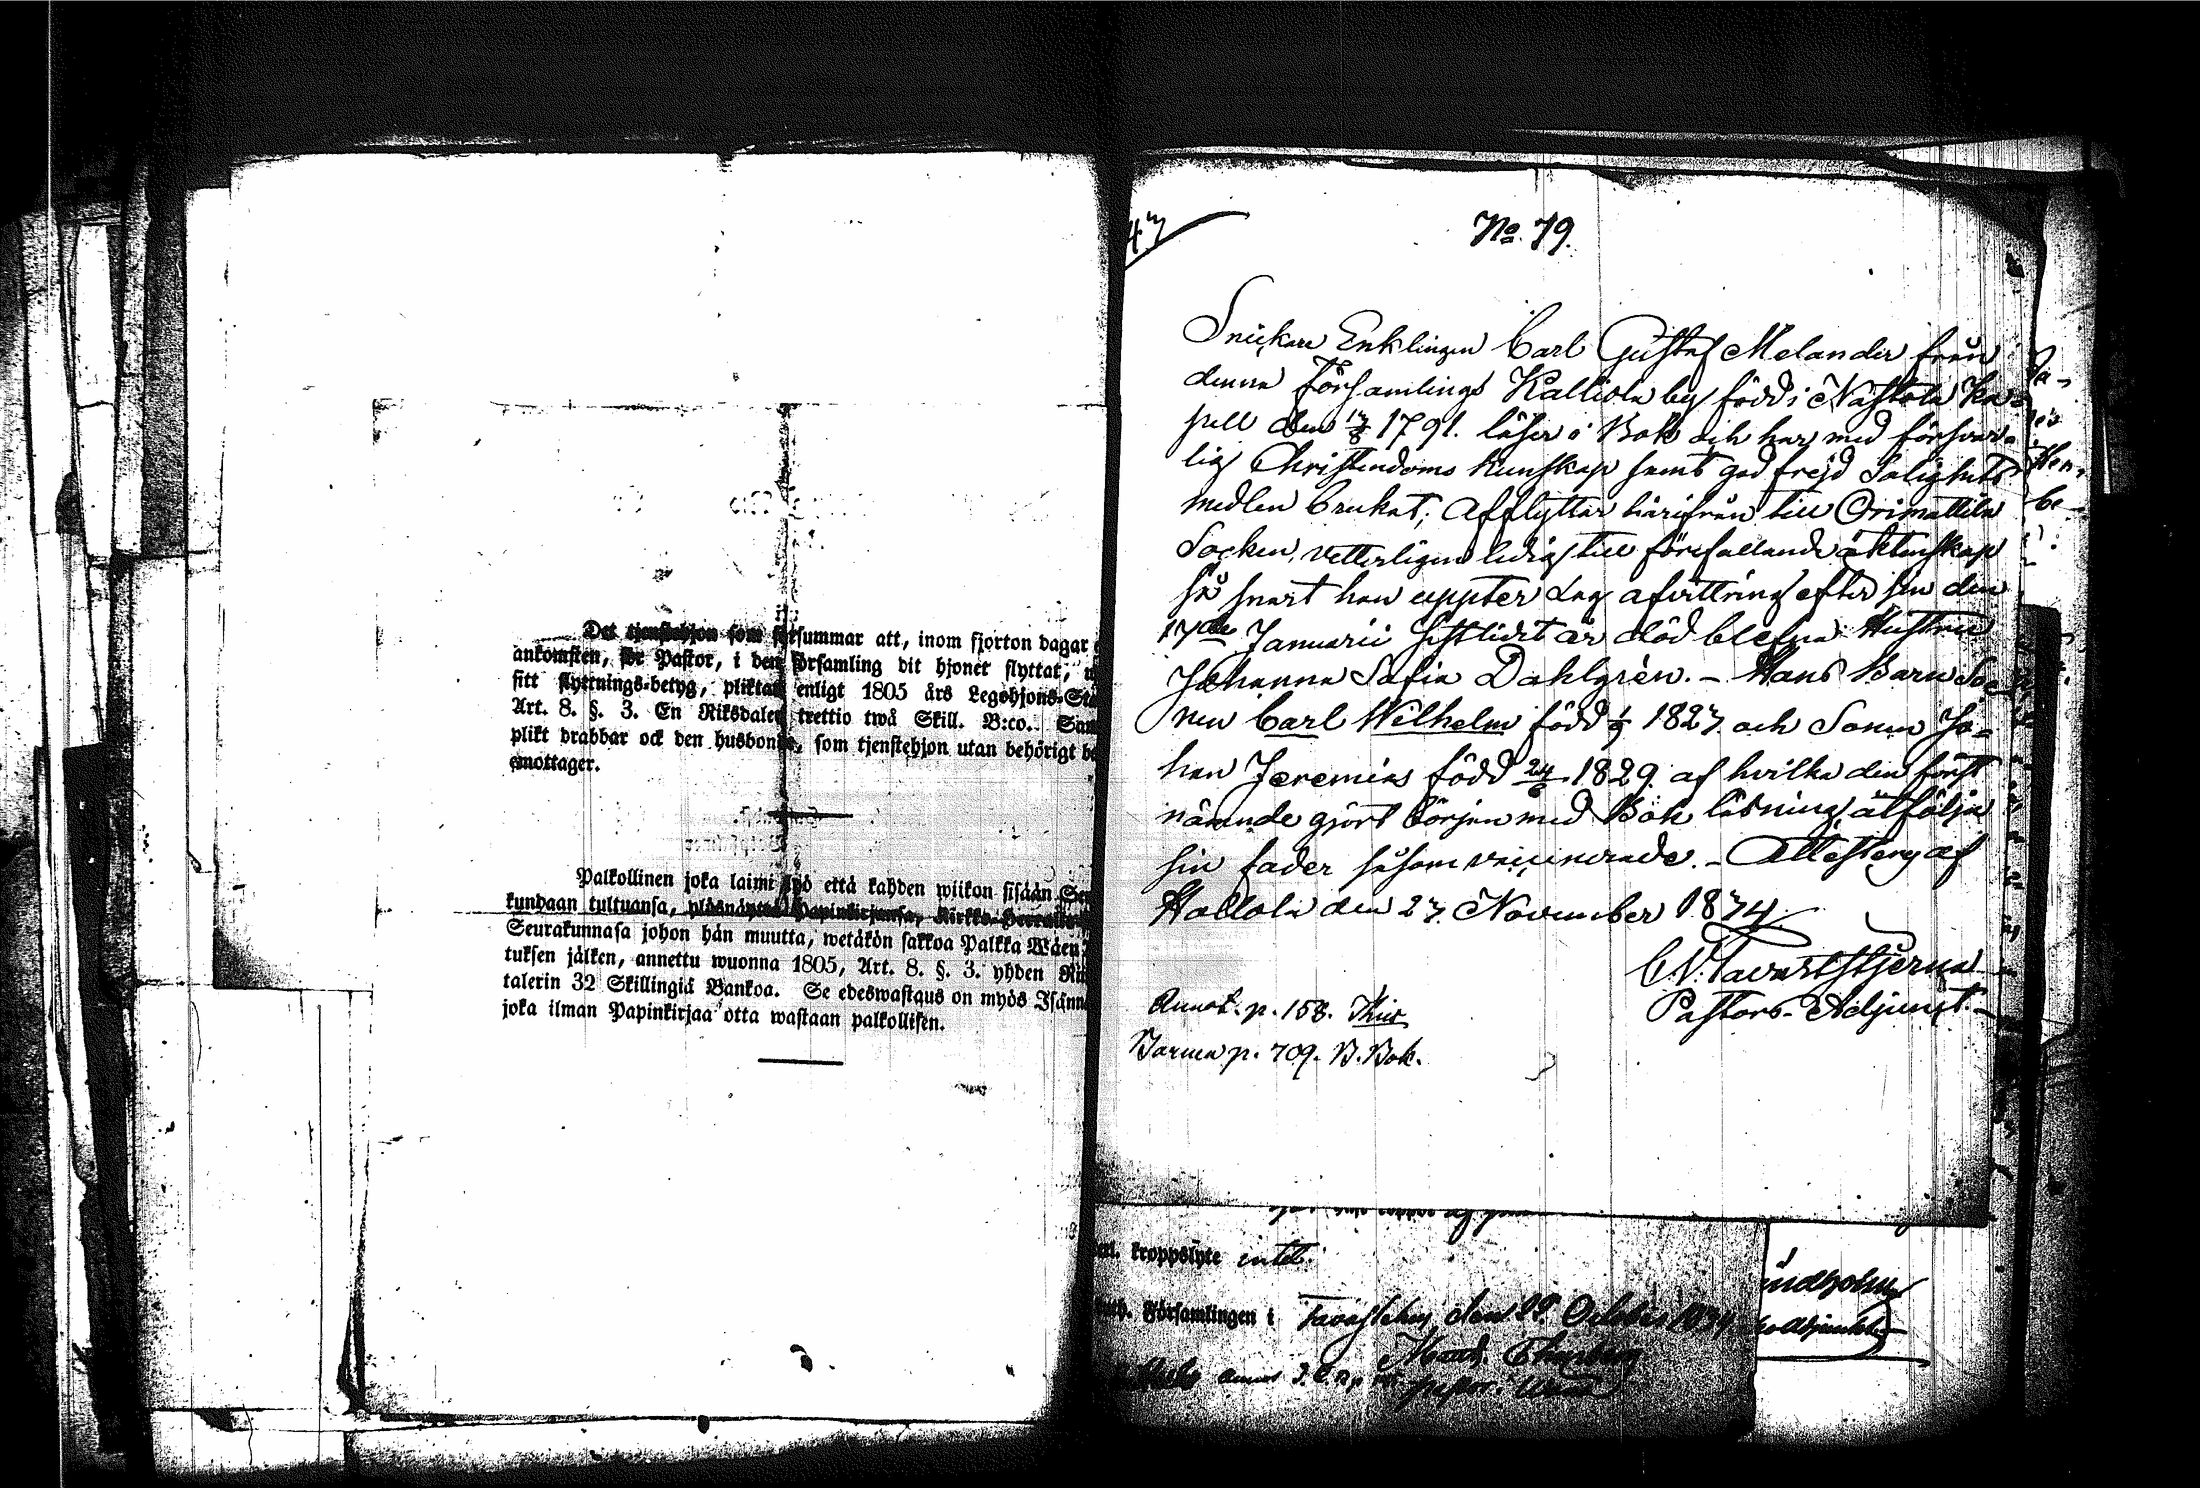 Det tjenstehjon som försummar att, inom fjorton dagar
ankomsten, för Pastor, i den församling dit hjonet flyttat,
sitt flyttnings-betyg, plikta enligt 1805 års Legohjons-Sta
Art. 8. §. 3. En Riksdaler trettio twå Skill. B:co. Sam
plikt drabbar ock den husbonde, som tjenstehjon utan behörigt be
emottager.
Palkollinen joka laimi lyö että kahden wiikon sisään Seu
kundaan tultuansa, ylösnäyttä Papinkirjansa, Kirkko-Herralle
Seurakunnasa johon hän muutta, wetäkön sakkoa Palkka Wäen
tuksen jälken, annettu wuonna 1805, Art. 8. §. 3. yhden Rik
talerin 32 Skillingiä Bankoa. Se edeswastaus on myös Isänn
joka ilman Papinkirjaa otta wastaan palkollisen.
47
No. 79.
Snickare Enklingen Carl Gustaf Melander från
denna Församlings Kalliola by född i Nastola Ka-
pell den 17/8 1791. läser i Bok och har med försvar-
lig Christendoms kunskap samt god frejd Salighets
medlen brukat; Afflyttar härifrån till Orimattila
Socken, vetterligen ledig till förefallande äktenskap
så snart han uppter Lag afvittring efter sin den
17de Januarii sistlidit år död blefna Hustru
Johanna Sofia Dahlgrén. - Hans Barn So-
nen Carl Wilhelm född 1/9 1827. och Sonen Jo-
han Jeremias född 24/6 1829. af hvilka den först
nämnde gjort början med Bok läsning, åtfölja
sin fader såsom vaccinerade. - Attesterar af
Hollola den 27. November 1834.
C. N. Tavaststjerna
Pastors-Adjunct.
Annot. p. 158.
Barnen p. 709. B. Bok.
kroppslyte intet.
Församlingen i Tavastehus den 29. October 1834